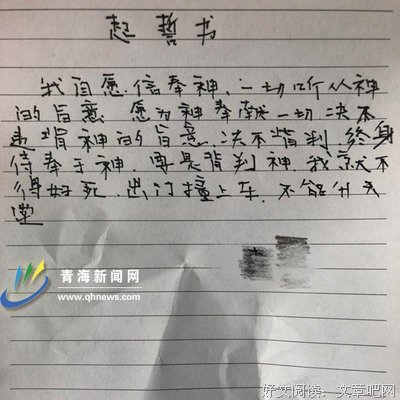 起誓书
我自愿信奉神,一切听从神
的旨意 愿为神奉献一切 决不
违背神的旨意.决不背判 终身
侍奉于神.要是背判神 我就不
得好死 出门撞上车.不能升天
堂
青海新闻网
www.qhnews.com
好文阅读:文章吧网